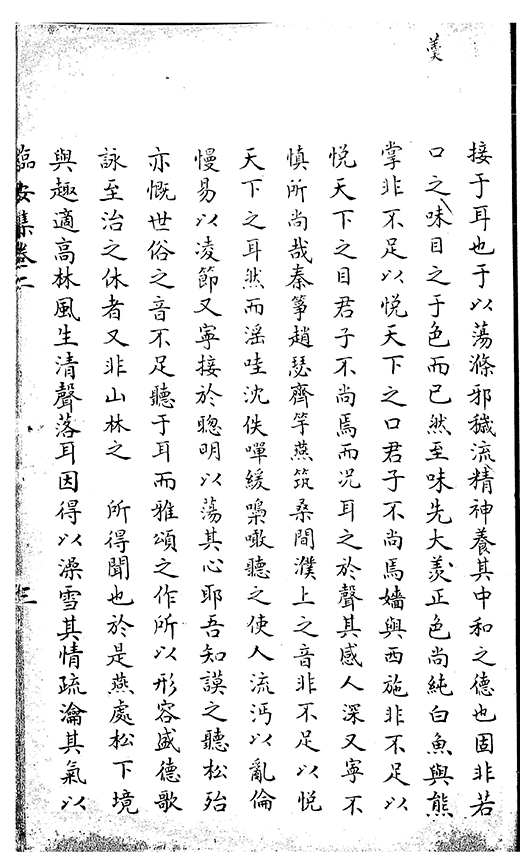 羹
接于耳也于以蕩滌邪穢流精神養其中和之德也固非若
口之味目之于色而已然至味先大羙正色尚純白魚與熊
掌非不足以悅天下之口君子不尚焉嬙與西施非不足以
悅天下之目君子不尚焉而况耳之於聲其感人深又寧不
慎所尚哉秦箏趙瑟齊竽燕筑桑間濮上之音非不足以悅
天下之耳然而滛哇沈佚嘽緩噪噭聽之使人流沔以亂倫
慢易以凌節又寧接於聰明以蕩其心耶吾知謨之聽松殆
亦慨世俗之音不足聽于耳而雅頌之作所以形容盛德歌
詠至治之休者又非山林之 所得聞也於是燕處松下境
與趣適高林風生清聲落耳因得以澡雪其情疏瀹其氣以
臨安集卷二 三